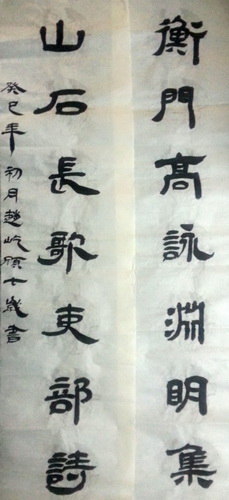 衡門高詠淵明集
山石長歌吏部詩
癸巳年初月趙屹頎七歲書